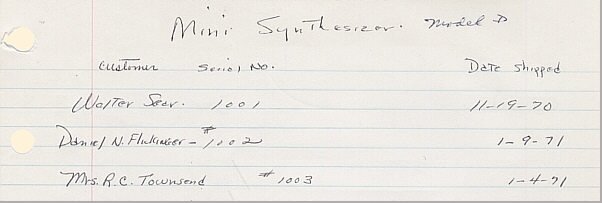 Mini Synthesizer. Model D
Customer Serial No. Date Shipped
Walter Sear. 1001 11-19-70
Daniel N. Flickinger - #1002 1-9-71
Mrs. R.C. Townsend #1003 1-4-71